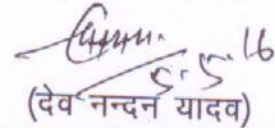 5.5.16
(देव नन्दन यादव)